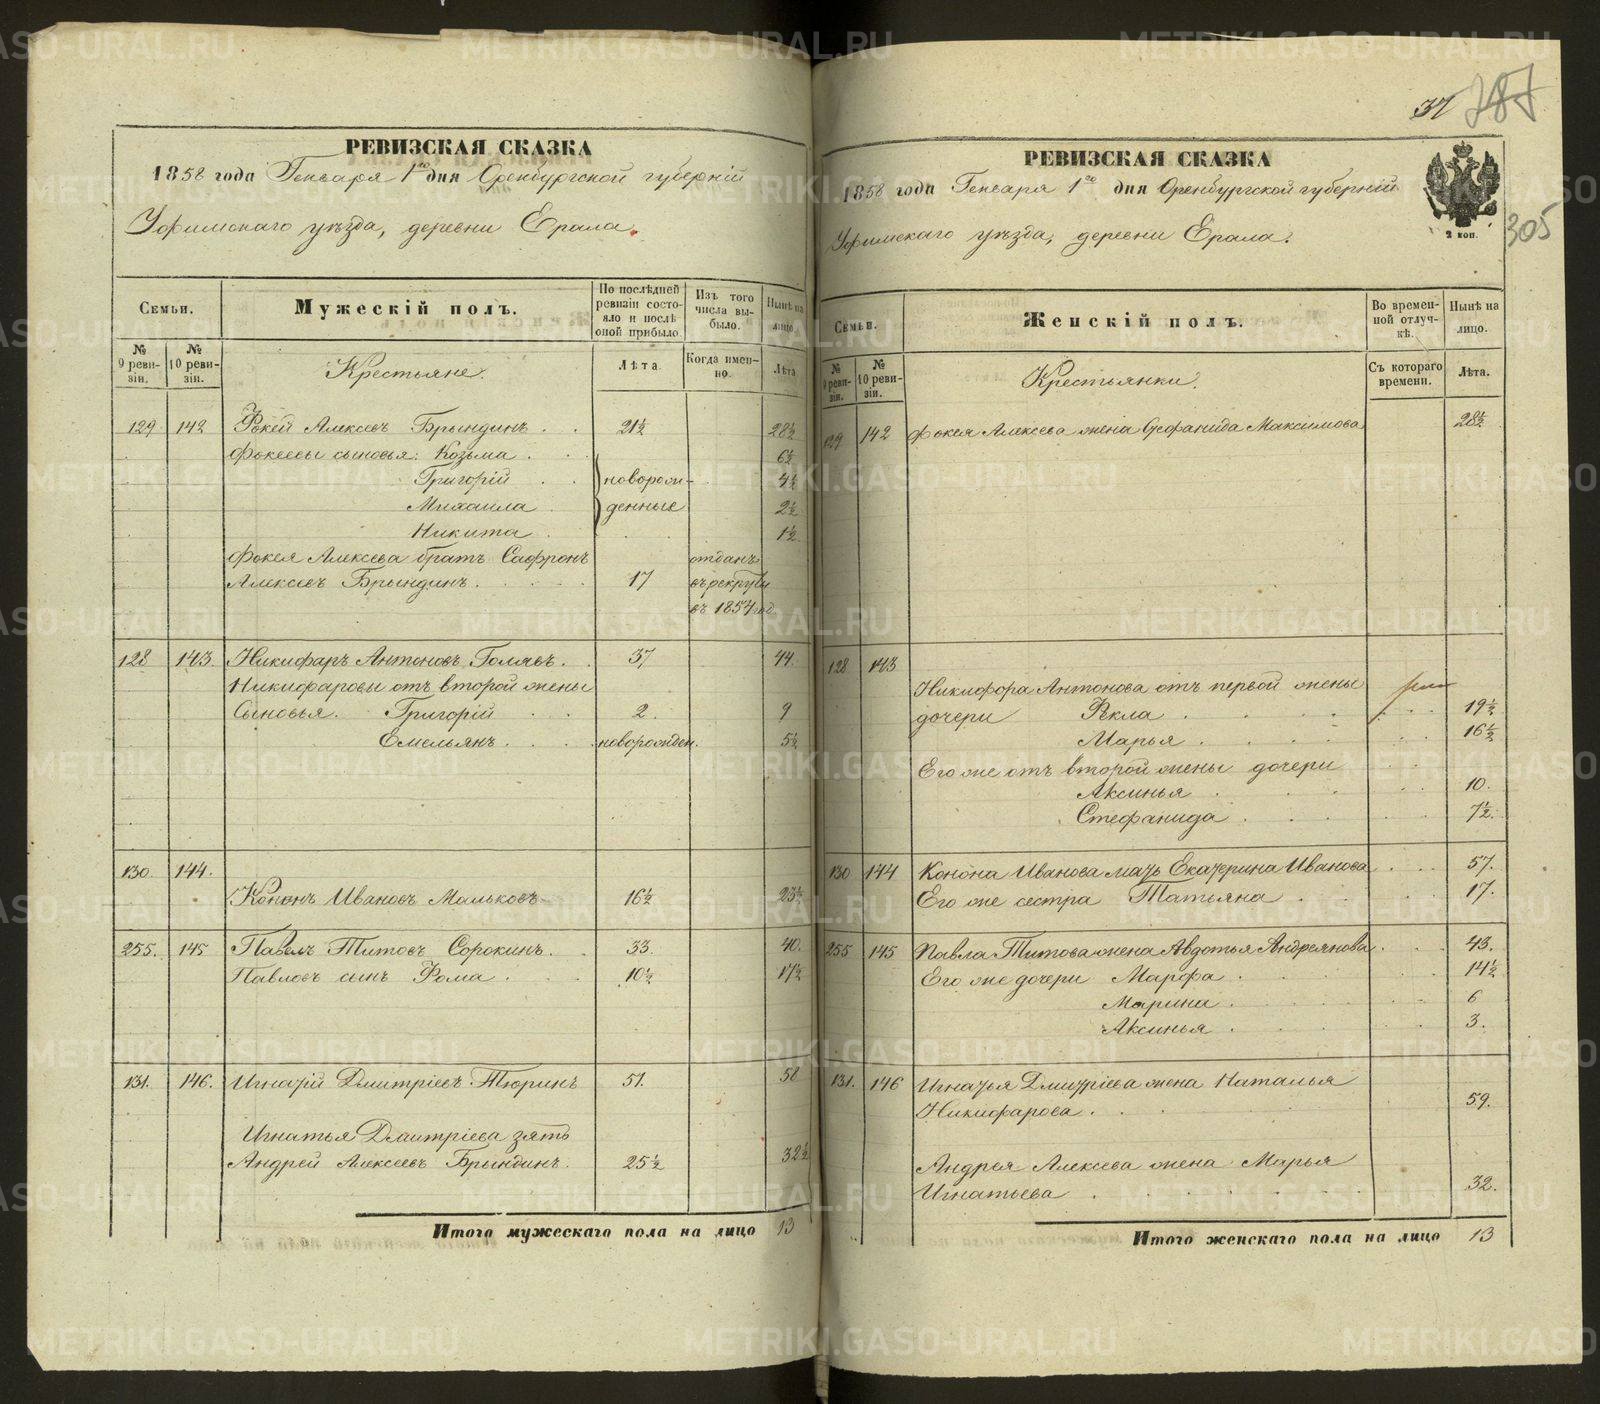 РЕВИЗСКАЯ СКАЗКА
1858 года Генваря 1го дня Оренбургской губерніи
Уфимскаго уѣзда, деревни Ерала.
Семьи.
Мужескій полъ.
По послѣдней ревизіи состояло и послѣ оной прибыло.
Изъ того числа выбыло.
Нынѣ на лицо.
№ 9 ревизіи.
№ 10 ревизіи.
Крестьяне.
Лѣта.
Когда именно.
Лѣта
129 142 Фокей Алексѣевъ Брындинъ . . 21½ 28½
Фокеевы сыновья: Козьма . 6½
Григорій . . новорож- 4½
Михаила . денные 2½
Никита . 1½
Фокея Алексѣева братъ Сафронъ отданъ
Алексѣевъ Брындинъ . . . . 17 въ рекруты
въ 1854 год.
128 143. Никифаръ Антоновъ Голяевъ . . 37 44.
Никифаровы отъ второй жены
Сыновья. Григорій . . 2. 9
Емельянъ . . . новорожден. 5½
130 144.
Кононъ Ивановъ Мальковъ 16½ 23½
255. 145 Павелъ Титовъ Сорокинъ . . 33. 40.
Павловъ сынъ Фома . . . 10½ 17½
131. 146. Игнатій Дмитріевъ Тюринъ 51. 58
Игнатья Дмитріева зять
Андрей Алексѣевъ Брындинъ. 25½ 32½
Итого мужескаго пола на лицо 13
37 787
305
РЕВИЗСКАЯ СКАЗКА
1858 года Генваря 1го дня Оренбургской губерніи
Уфимскаго уѣзда, деревни Ерала.
2 коп.
Семьи.
Женскій полъ.
Во временной отлучкѣ.
Нынѣ на лицо.
№ 9 ревизіи.
№ 10 ревизіи.
Крестьянки.
Съ котораго времени.
Лѣта.
129 142 Фокея Алексѣева жена Стефанида Максимова 28½
128 143
Никифора Антонова отъ первой жены
дочери Фекла . . . . 19½
Марья . . . . 16½
Его же отъ второй жены дочери
Аксинья . . . . 10.
Стефанида . . . 7½.
130 144 Конона Иванова мать Екатерина Иванова . . 57.
Его же сестра Татьяна . . 17.
255 145 Павла Титова жена Авдотья Андреянова . . 43.
Его же дочери Марфа . . . 14½
Марина . . . 6
Аксинья . . . 3.
131. 146 Игнатья Дмитріева жена Наталья
Никифарова . . . . 59.
Андрея Алексѣева жена Марья
Игнатьева . . . . 32.
Итого женскаго пола на лицо 13
METRIKI.GASO-URAL.RU